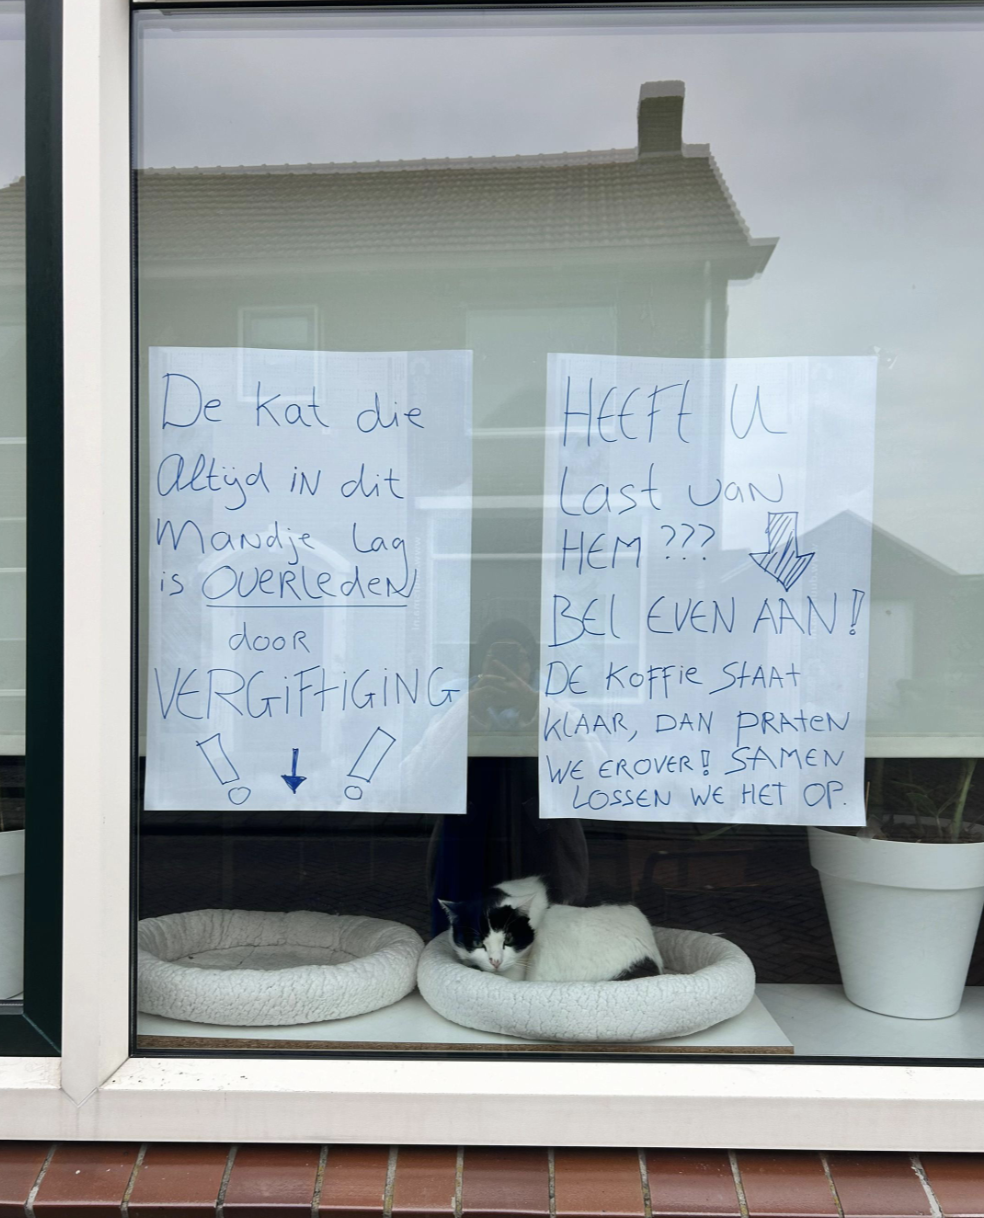 De kat die
Altijd in dit
Mandje lag
is OVERLEDEN
door
VERGIFTIGING
! !
HEEFT U
Last van
HEM ???
BEL EVEN AAN!
DE KOFFIE STAAT
KLAAR, DAN PRATEN
WE EROVER! SAMEN
LOSSEN WE HET OP.